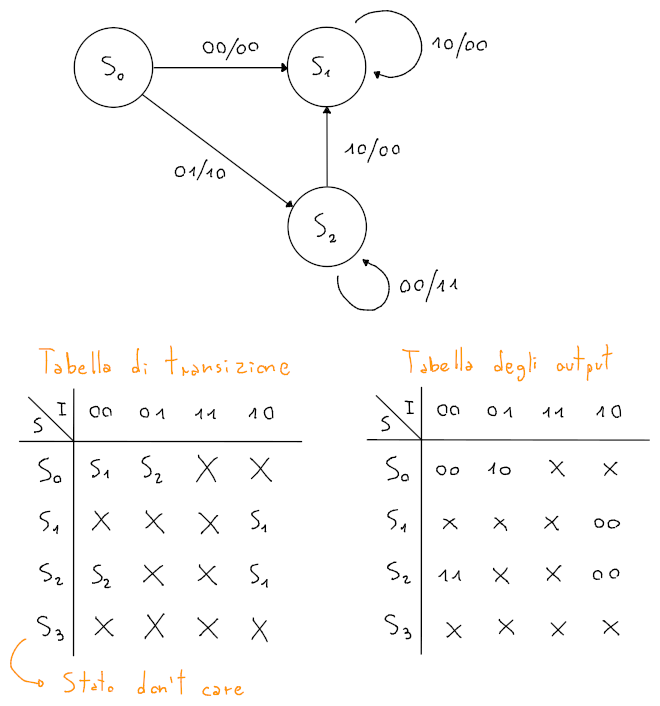 S₀ 00/00 S₁ 10/00
01/10 10/00
S₂
00/11
Tabella di transizione
S I 00 01 11 10
S₀ S₁ S₂ X X
S₁ X X X S₁
S₂ S₂ X X S₁
S₃ X X X X
Stato don't care
Tabella degli output
S I 00 01 11 10
S₀ 00 10 X X
S₁ X X X 00
S₂ 11 X X 00
S₃ X X X X